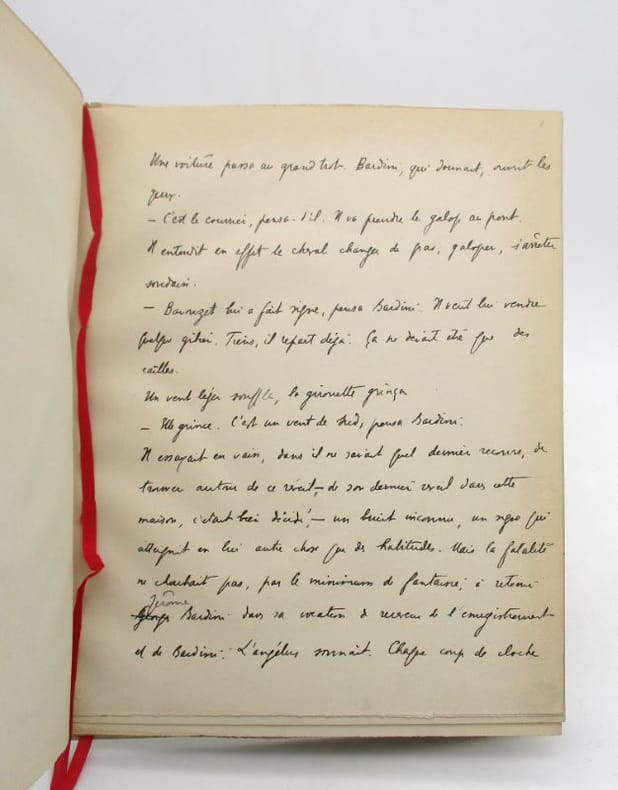 Une voiture passa au grand trot. Bardini, qui dormait, ouvrit les
yeux.
– C'est le courrier, pensa-t-il. Il va prendre le galop au pont.
Il entendit en effet le cheval changer de pas, galoper, s'arrêter
soudain.
– Bavouzet lui a fait signe, pensa Bardini. Il veut lui vendre
quelque gibier. Tiens, il repart déjà. Ça ne devait être que des
cailles.
Un vent léger souffla, la girouette grinça
– Elle grince. C'est un vent de Sud, pensa Bardini.
Il essayait en vain, dans il ne savait quel dernier recours, de
trouver autour de ce réveil, – de son dernier réveil dans cette
maison, c'était bien décidé, – un bruit inconnu, un signe qui
atteignît en lui autre chose que des habitudes. Mais la fatalité
ne cherchait pas, par le minimum de fantaisie, à retenir
Jérôme
Bardini dans sa vocation de receveur de l'enregistrement
et de Bardini. L'angélus sonnait. Chaque coup de cloche